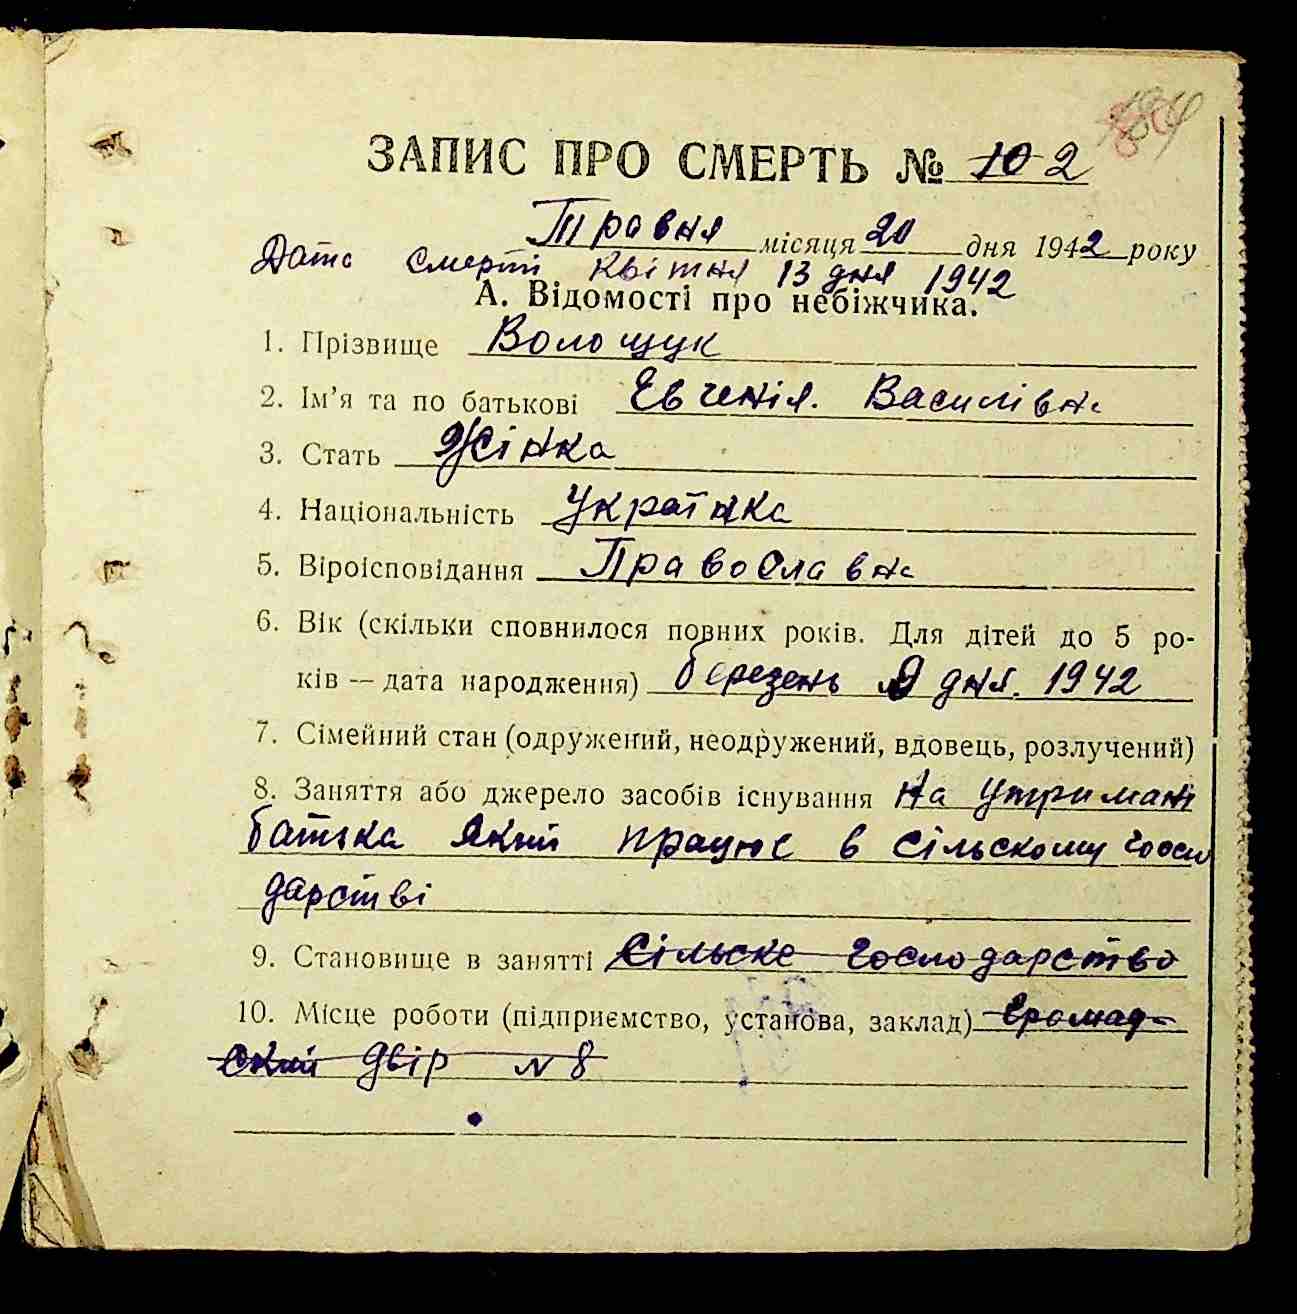 ЗАПИС ПРО СМЕРТЬ № 102
Травня місяця 20 дня 1942 року
Дата смерті квітня 13 дня 1942
А. Відомості про небіжчика.
1. Прізвище Волощук
2. Ім'я та по батькові Евгенія. Василівна
3. Стать Жінка
4. Національність Українка
5. Віроісповідання Православна
6. Вік (скільки сповнилося повних років. Для дітей до 5 ро-
ків — дата народження) березень 9 дня. 1942
7. Сімейний стан (одружений, неодружений, вдовець, розлучений)
8. Заняття або джерело засобів існування На утримані
батька який працює в сільскому госпо
дарстві
9. Становище в занятті Сільске господарство
10. Місце роботи (підприємство, установа, заклад) Громад-
ский двір № 8